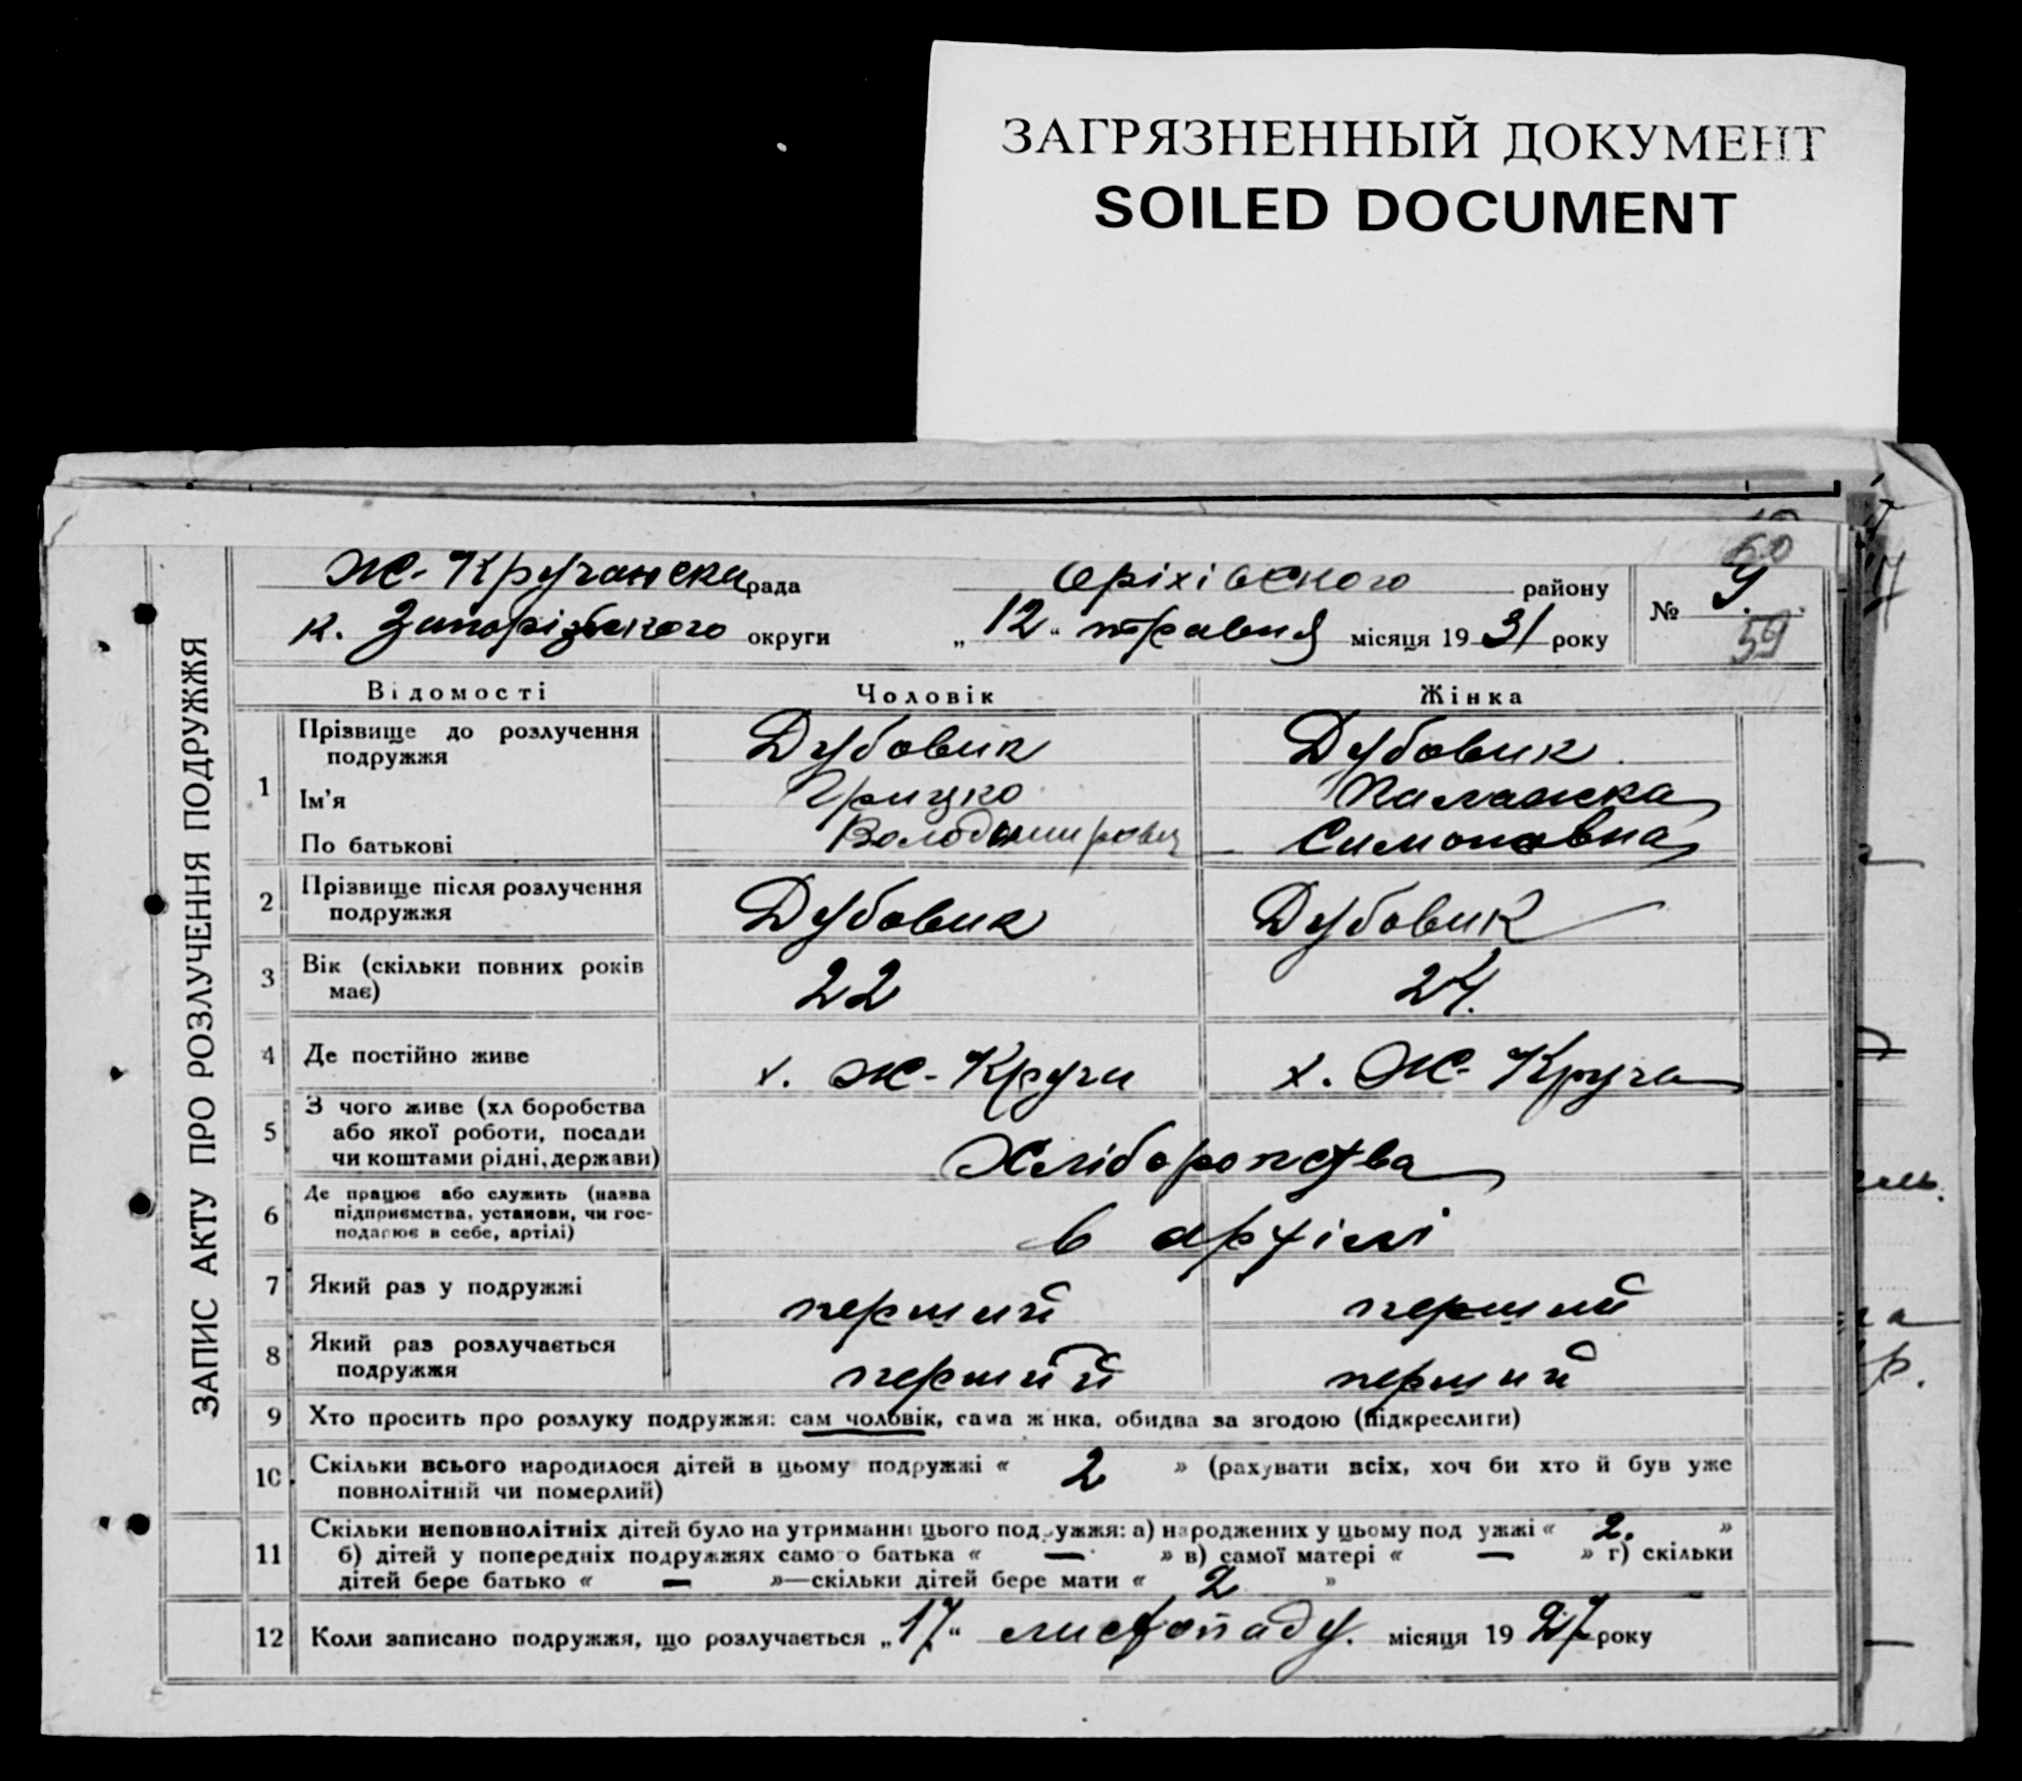 ЗАГРЯЗНЕННЫЙ ДОКУМЕНТ
SOILED DOCUMENT
ЗАПИС АКТУ ПРО РОЗЛУЧЕННЯ ПОДРУЖЖЯ
Ж-Кручанска рада Оріхівського району
к. Запорізького округи „12“ травня місяця 1931 року № 9.
60
59
Відомості Чоловік Жінка
1 Прізвище до розлучення подружжя Дубовик Дубовик
Ім'я Грицко Палажка
По батькові Володимирович Симоновна
2 Прізвище після розлучення подружжя Дубовик Дубовик
3 Вік (скільки повних років має) 22 24.
4 Де постійно живе х. Ж-Кручи х. Ж-Круча
5 З чого живе (хл боробства або якої роботи, посади чи коштами рідні, держави) Хліборопства
6 Де працює або служить (назва підприємства, установи, чи господарює в себе, артілі) в артілі
7 Який раз у подружжі перший перший
8 Який раз розлучається подружжя перший перший
9 Хто просить про розлуку подружжя: сам чоловік, сама жінка, обидва за згодою (підкреслити)
10. Скільки всього народилося дітей в цьому подружжі « 2 » (рахувати всіх, хоч би хто й був уже
повнолітній чи померлий)
11 Скільки неповнолітніх дітей було на утриманні цього подружжя: а) народжених у цьому под ужжі « 2. »
б) дітей у попередніх подружжях само о батька « — » в) самої матері « — » г) скільки
дітей бере батько « — »—скільки дітей бере мати « 2 »
12 Коли записано подружжя, що розлучається „17“ листопаду. місяця 1927 року